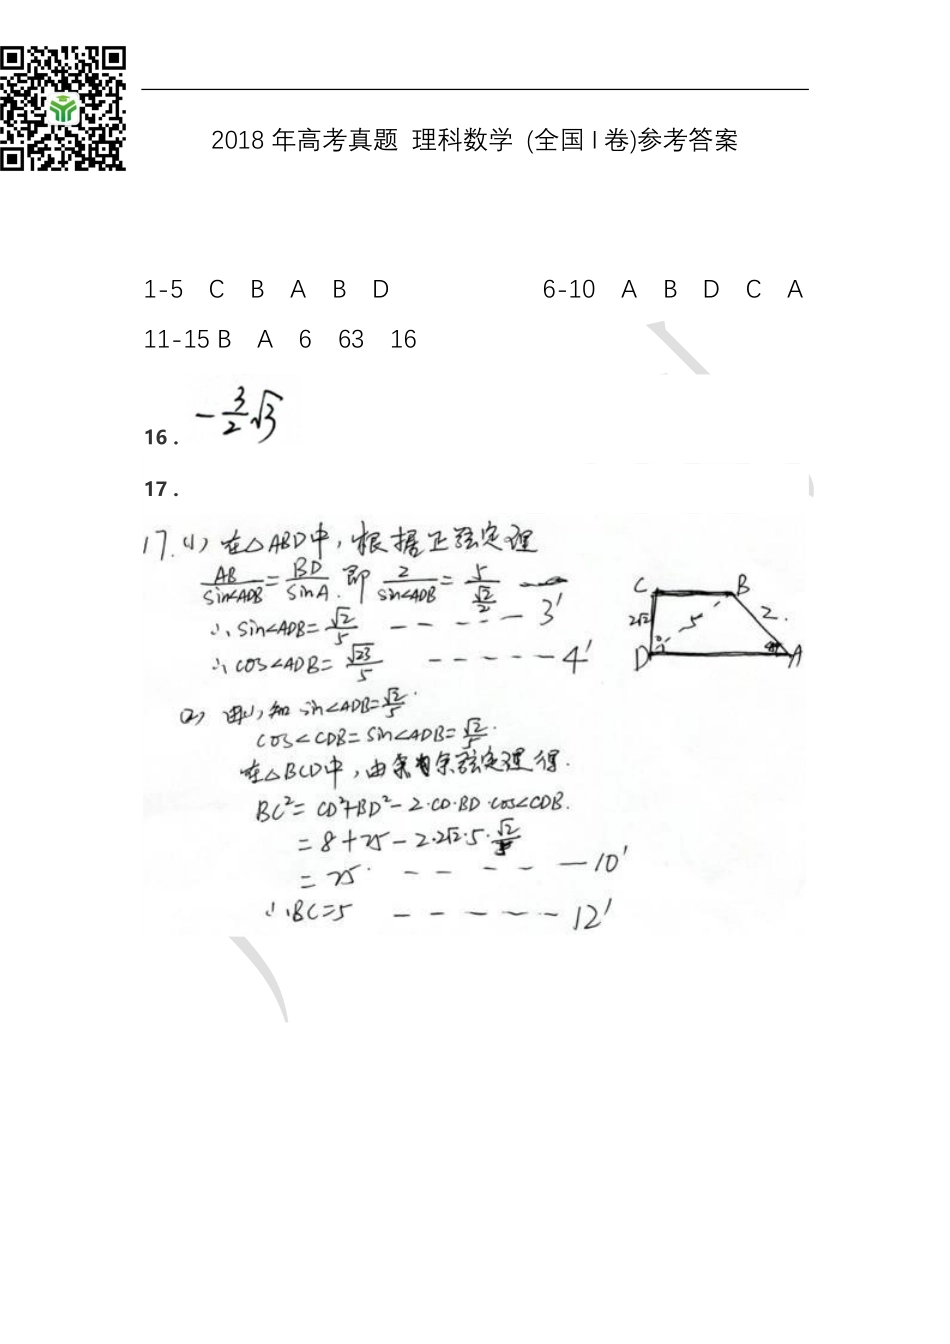 2018 年高考真题 理科数学 (全国 I 卷)参考答案
1-5 C B A B D 6-10 A B D C A
11-15 B A 6 63 16
16. -3/2√3
17.
17. (1) 在△ABD中,根据正弦定理
AB/sin∠ADB = BD/sinA. 即 2/sin∠ADB = 5/(√2/2)
∴ sin∠ADB = √2/5 - - - - - - 3'
∴ cos∠ADB = √23/5 - - - - - 4'
C B
2√2 5 2
D A
(2) 由(1)知 sin∠ADB=√2/5
cos∠CDB = sin∠ADB = √2/5.
在△BCD中,由余弦定理得.
BC²= CD²+BD²-2·CD·BD·cos∠CDB.
= 8+25-2·2√2·5·√2/5
= 25 - - - - - 10'
∴BC=5 - - - - - - 12'